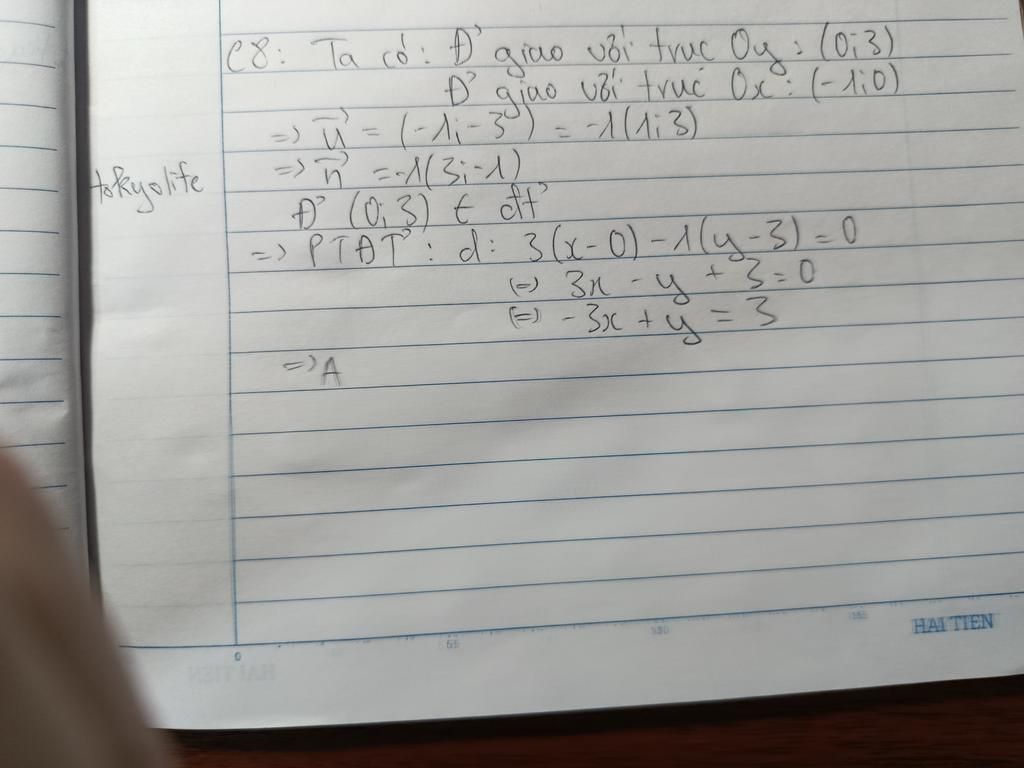 C8: Ta có: Đ' giao với trục Oy: (0;3)
Đ' giao với trục Ox: (-1;0)
=> u⃗ = (-1;-3) = -1(1;3)
=> n⃗ = -1(3;-1)
tokyolife
Đ' (0;3) ∈ đt'
=> PTĐT': d: 3(x-0) - 1(y-3) = 0
(=) 3x - y + 3 = 0
(=) -3x + y = 3
=> A
0
HAI TIEN